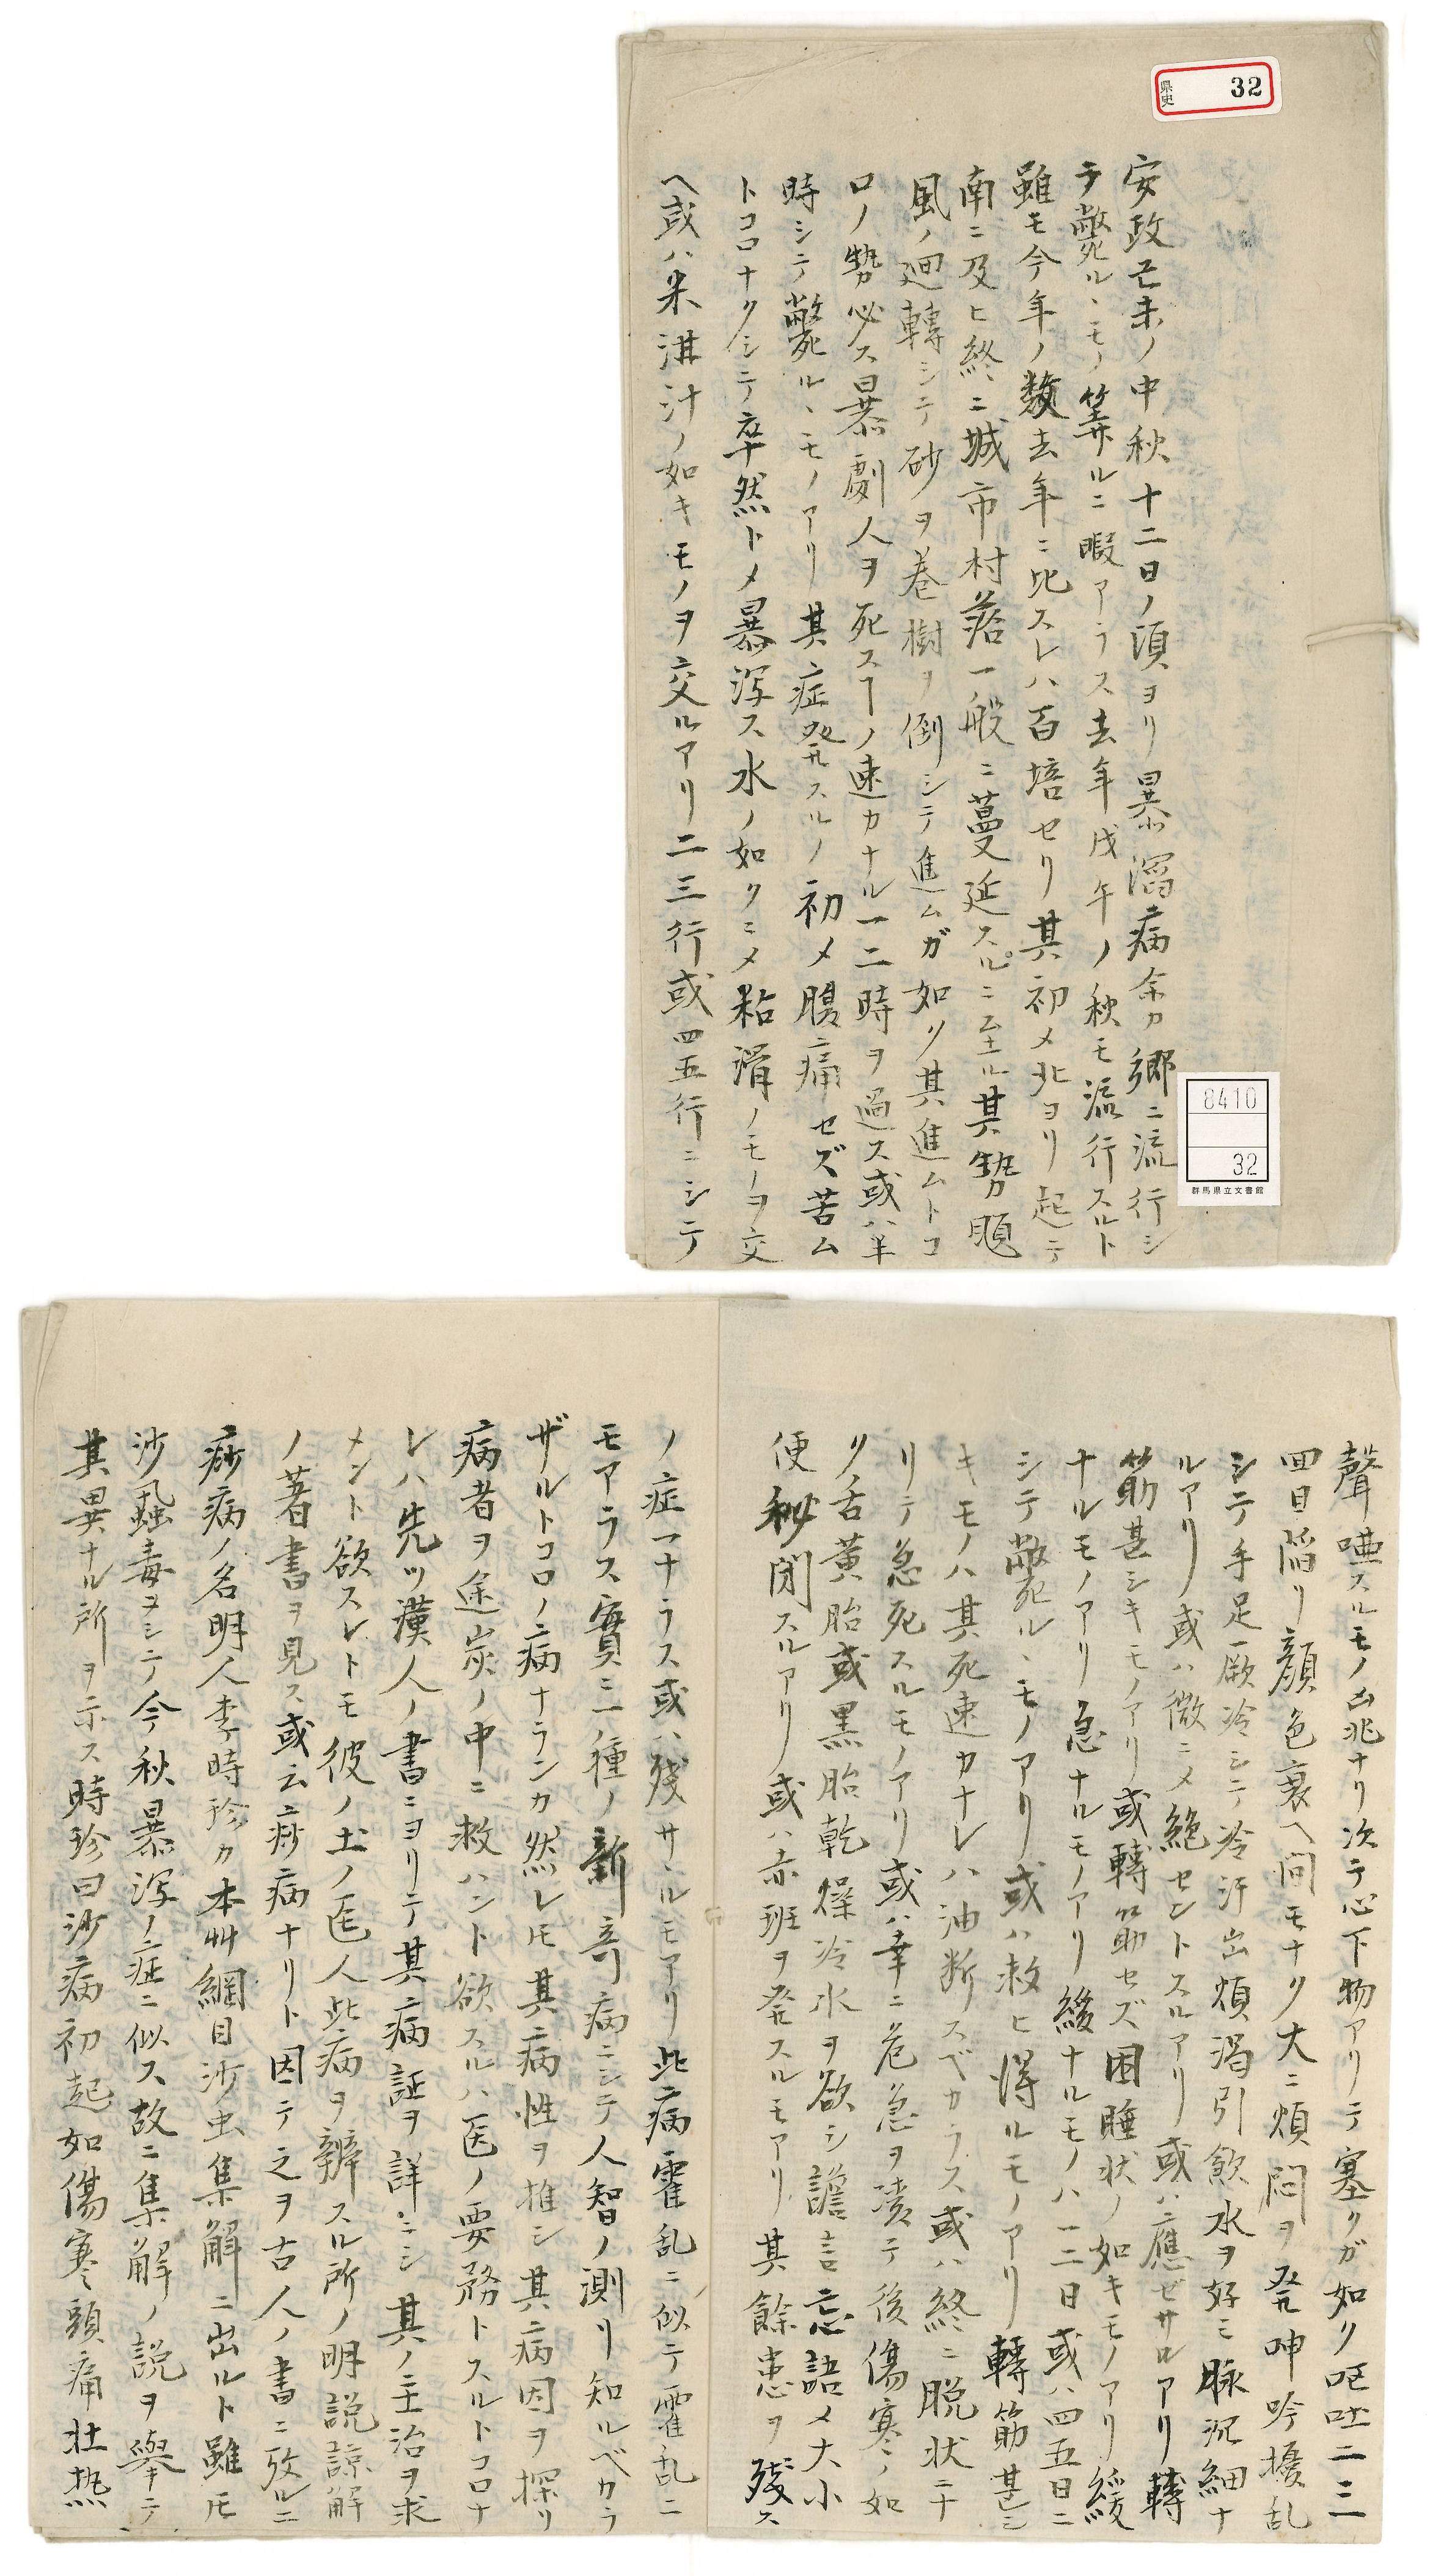 県史 32
安政己未ノ中秋十二日ノ頃ヨリ暴瀉病余カ郷ニ流行シ
テ斃ルヽモノ筭ルニ暇アラス去年戊午ノ秋モ流行スルト
雖モ今年ノ数去年ニ比スレハ百培セリ其初メ北ヨリ起テ
南ニ及ヒ終ニ城市村落一般ニ蔓延スルニ至ル其勢颶
風ノ廻轉シテ砂ヲ巻樹ヲ倒シテ進ムガ如ク其進ムトコ
ロノ勢必ス暴劇人ヲ死スヿノ速カナル一二時ヲ過ス或ハ半
時シテ斃ルヽモノアリ其症発スルノ初メ腹痛セズ苦ム
トコロナクシテ卒然トメ暴瀉ス水ノ如クニメ粘滑ノモノヲ交
ヘ或ハ米泔汁ノ如キモノヲ交ルアリ二三行或四五行ニシテ
8410
32
群馬県立文書館
聲唖スルモノ凶兆ナリ次テ心下物アリテ塞クガ如ク嘔吐二三
四目陥リ顔色衰ヘ間モナク大ニ煩悶ヲ発呻吟擾乱
シテ手足厥冷シテ冷汗出煩渇引飲水ヲ好ミ脉沉細ナ
ルアリ或ハ微ニメ絶セントスルアリ或ハ應ゼサルアリ轉
筋甚シキモノアリ或轉筋セズ困睡状ノ如キモノアリ緩
ナルモノアリ急ナルモノアリ緩ナルモノハ一三日或ハ四五日ニ
シテ斃ルヽモノアリ或ハ救ヒ得ルモノアリ轉筋甚シ
キモノハ其死速カナレハ油断スベカラス或ハ終ニ脱状ニナ
リテ急死スルモノアリ或ハ幸ニ危急ヲ凌テ後傷寒ノ如
ク舌黄胎或黒胎乾燥冷水ヲ欲シ譫言忘語メ大小
便秘閉スルアリ或ハ赤班ヲ発スルモアリ其餘患ヲ残ス
ノ症一ナラス或ハ残サヽルモアリ此病霍乱ニ似テ霍乱ニ
モアラス實ニ一種ノ新奇病ニシテ人智ノ測リ知ルベカラ
ザルトコロノ病ナランカ然レ𪜈其病性ヲ推シ其病因ヲ探リ
病者ヲ途炭ノ中ニ救ハント欲スルハ医ノ要務トスルトコロナ
レハ先ツ漢人ノ書ニヨリテ其病証ヲ詳ニシ其ノ主治ヲ求
メント欲スレトモ彼ノ土ノ医人此病ヲ辨スル所ノ明説諒解
ノ著書ヲ見ス或云痧病ナリト因テ之ヲ古人ノ書ニ攷ルニ
痧病ノ名明人李時珍カ本艸綱目沙虫集解ニ出ルト雖𪜈
沙虱蠱毒ヨシテ今秋暴瀉ノ症ニ似ス故ニ集解ノ説ヲ擧テ
其異ナル所ヲ示ス時珍曰沙病初起如傷寒頭痛壮熱